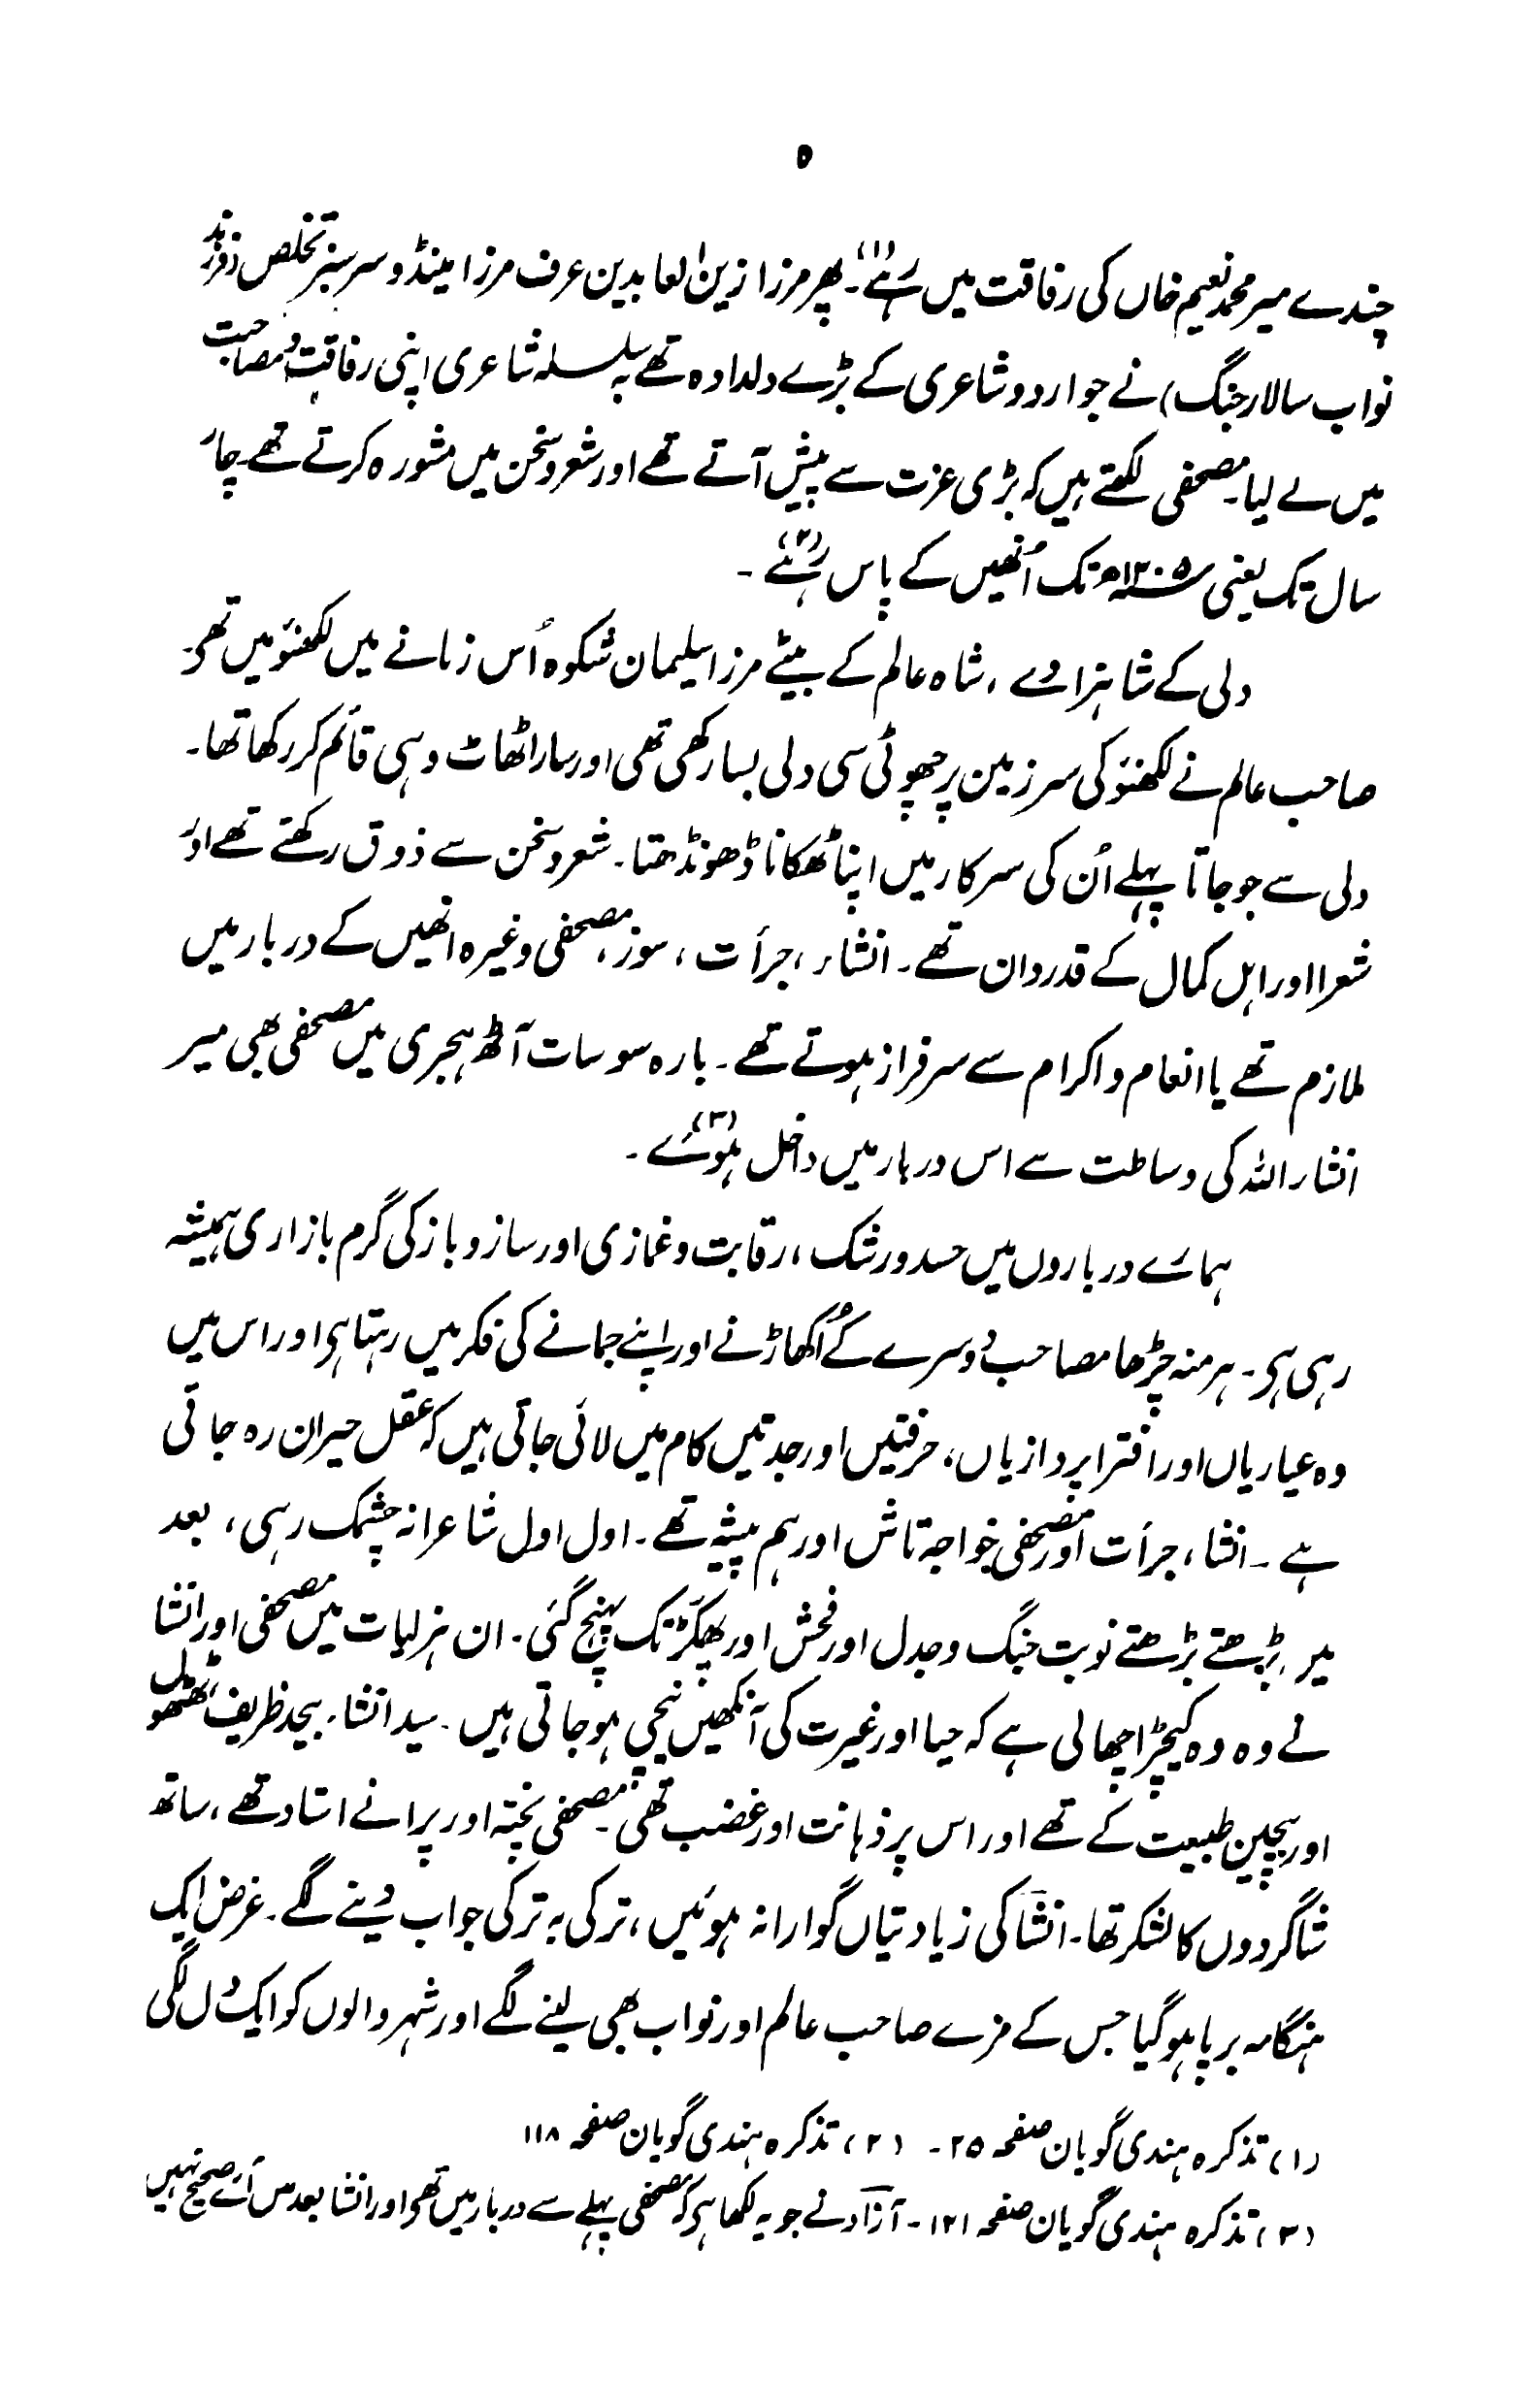 ۵
چندے میر محمد نعیم خاں کی رفاقت میں رہے(۱)۔ پھر مرزا زین العابدین عرف مرزا مینڈو سرسبز تخلص (فرزند
نواب سالار جنگ) نے جو اردو شاعری کے بڑے دلدادہ تھے بہ سلسلہ شاعری اپنی رفاقت و مصاحبت
میں لے لیا۔ مصحفی لکھتے ہیں کہ بڑی عزت سے پیش آتے تھے اور شعر و سخن میں مشورہ کرتے تھے۔ چار
سال تک یعنی ۱۲۰۵ھ تک اُنھیں کے پاس رہے(۲)۔
دلی کے شاہزادے، شاہ عالم کے بیٹے مرزا سلیمان شکوہ اُس زمانے میں لکھنؤ میں تھے۔
صاحب عالم نے لکھنؤ کی سرزمین پر چھوٹی سی دلی بسا رکھی تھی اور سارا ٹھاٹ وہی قائم کر رکھا تھا۔
دلی سے جو جاتا پہلے اُن کی سرکار میں اپنا ٹھکانا ڈھونڈھتا۔ شعر و سخن سے ذوق رکھتے تھے اور
شعرا اور اہل کمال کے قدردان تھے۔ انشاء، جرأت، سوز، مصحفی وغیرہ انھیں کے دربار میں
ملازم تھے یا انعام و اکرام سے سرفراز ہوتے تھے۔ بارہ سو سات آٹھ ہجری میں مصحفی بھی میر
انشاء اللہ کی وساطت سے اس دربار میں داخل ہوئے(۳)۔
ہمارے درباروں میں حسد و رشک، رقابت و غمازی اور ساز و باز کی گرم بازاری ہمیشہ
رہی ہی۔ ہر منہ چڑھا مصاحب دوسرے کے اُکھاڑنے اور اپنے جمانے کی فکر میں رہتا ہی اور اس میں
وہ عیاریاں اور افترا پردازیاں، حرفتیں اور جدتیں کام میں لائی جاتی ہیں کہ عقل حیران رہ جاتی
ہے۔ انشا، جرأت اور مصحفی خواجہ تاش اور ہم پیشہ تھے۔ اول اول شاعرانہ چشمک رہی، بعد
میں بڑھتے بڑھتے نوبت جنگ و جدل اور فحش اور پھکڑ تک پہنچ گئی۔ ان ہزلیات میں مصحفی اور انشا
نے وہ وہ کیچڑ اچھالی ہے کہ حیا اور غیرت کی آنکھیں نیچی ہو جاتی ہیں۔ سید انشاء بیحد ظریف، ٹھٹھول
اور بیچین طبیعت کے تھے اور اس پر ذہانت اور غضب تھی۔ مصحفی پختہ اور پرانے استاد تھے، ساتھ
شاگردوں کا لشکر تھا۔ انشا کی زیادتیاں گوارا نہ ہوئیں، ترکی بہ ترکی جواب دینے لگے۔ غرض ایک
ہنگامہ برپا ہو گیا جس کے مزے صاحب عالم اور نواب بھی لینے لگے اور شہر والوں کو ایک دل لگی
(۱) تذکرہ ہندی گویان صفحہ ۲۵۔ (۲) تذکرہ ہندی گویان صفحہ ۱۱۸
(۳) تذکرہ ہندی گویان صفحہ ۱۲۱۔ آزاد نے جو یہ لکھا ہی کہ مصحفی پہلے سے دربار میں تھے اور انشا بعد میں آئے صحیح نہیں